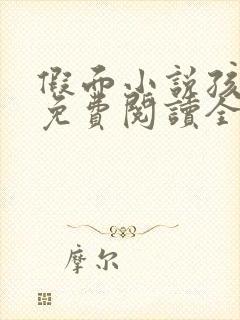 假面小說孩
免費閱讀全
摩尔